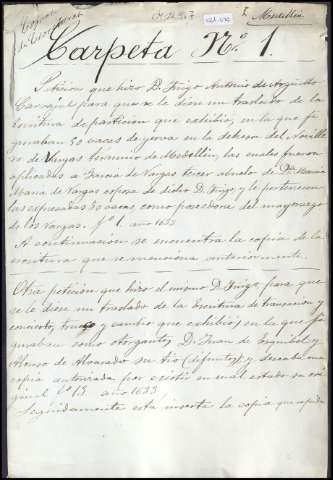 Medellin
Carpeta Nº 1.
Peticion que hizo D. Iñigo Antonio de Argüello
Carvajal para que se le diese un traslado de la
escritura de particion que exhibia, en la que fi-
guraban 30 vacas de yerva en la dehesa del Noville-
ro de Vargas termino de Medellin, las cuales fueron
aplicadas a Garcia de Vargas tercer abuelo de Dª Maria
de Vargas esposa de dicho D. Iñigo y le pertenecian
las expresadas 30 vacas como poseedora del mayorazgo
de los Vargas. fº 1. año 1633
A continuacion se encuentra la copia de la
escritura que se menciona anteriormente.
Otra peticion que hizo el mismo D. Iñigo para que
se le diese un traslado de la Escritura de transacion y
concierto, trueque y cambio que exhibió, en la que fi-
guraban como otorgantes, D. Juan de
Alonso de Alvarado su tio (difunto), y sacada una
copia autorizada por existir en mal estado su ori-
ginal fº 13 año 1633
Seguidamente está inserta la copia que se pide